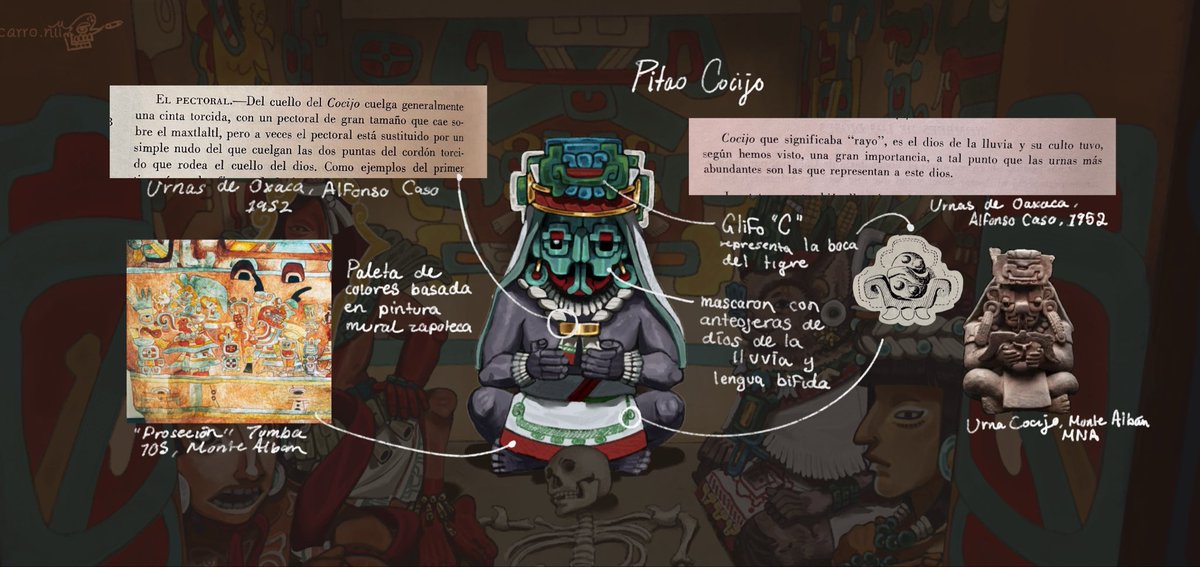 carro.nii
Pitao Cocijo
EL PECTORAL.—Del cuello del Cocijo cuelga generalmente
una cinta torcida, con un pectoral de gran tamaño que cae so-
bre el maxtlaltl, pero a veces el pectoral está sustituido por un
simple nudo del que cuelgan las dos puntas del cordón torci-
do que rodea el cuello del dios. Como ejemplos del primer
Urnas de Oxaca, Alfonso Caso
1952
Cocijo que significaba "rayo", es el dios de la lluvia y su culto tuvo,
según hemos visto, una gran importancia, a tal punto que las urnas más
abundantes son las que representan a este dios.
Urnas de Oaxaca,
Alfonso Caso, 1952
Glifo "C"
representa la boca
del tigre
Paleta de
colores basada
en pintura
mural zapoteca
mascaron con
anteojeras de
dios de la
lluvia y
lengua bifida
"Proseción" Tumba
105, Monte Alban
Urna Cocijo, Monte Albán
MNA